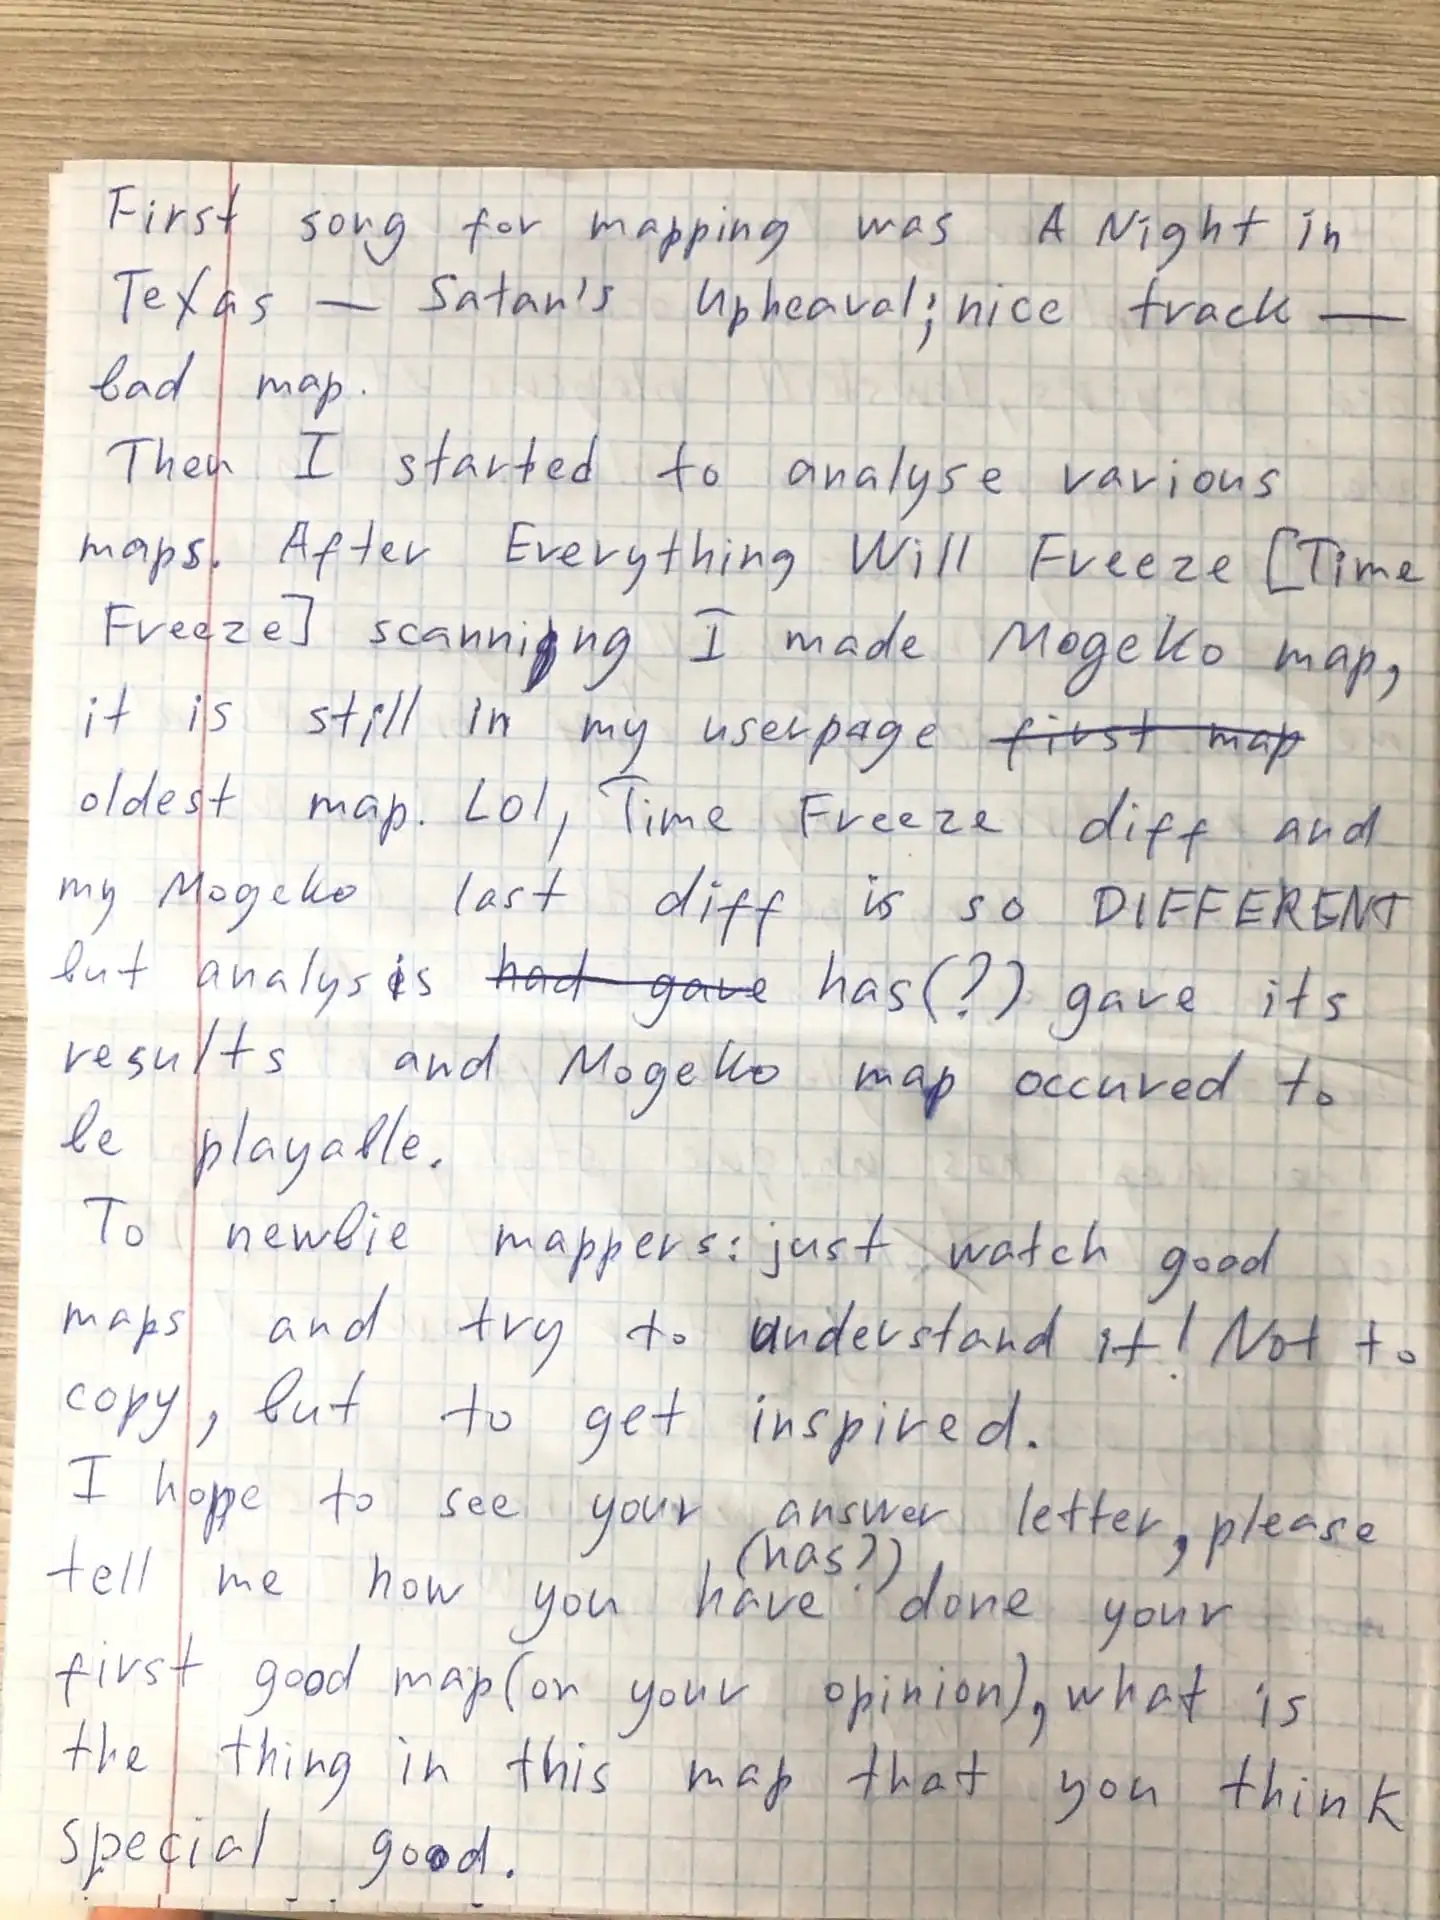 First song for mapping was A Night in
Texas — Satan's Upheaval; nice track —
bad map.
Then I started to analyse various
maps. After Everything Will Freeze [Time
Freeze] scanning I made Mogeko map,
it is still in my userpage ~~first map~~
oldest map. Lol, Time Freeze diff and
my Mogeko last diff is so DIFFERENT
but analysis ~~had gave~~ has(?) gave its
results and Mogeko map occured to
be playable.
To newbie mappers: just watch good
maps and try to understand it! Not to
copy, but to get inspired.
I hope to see your answer letter, please
(has?)
tell me how you have done your
first good map(on your opinion), what is
the thing in this map that you think
special good.